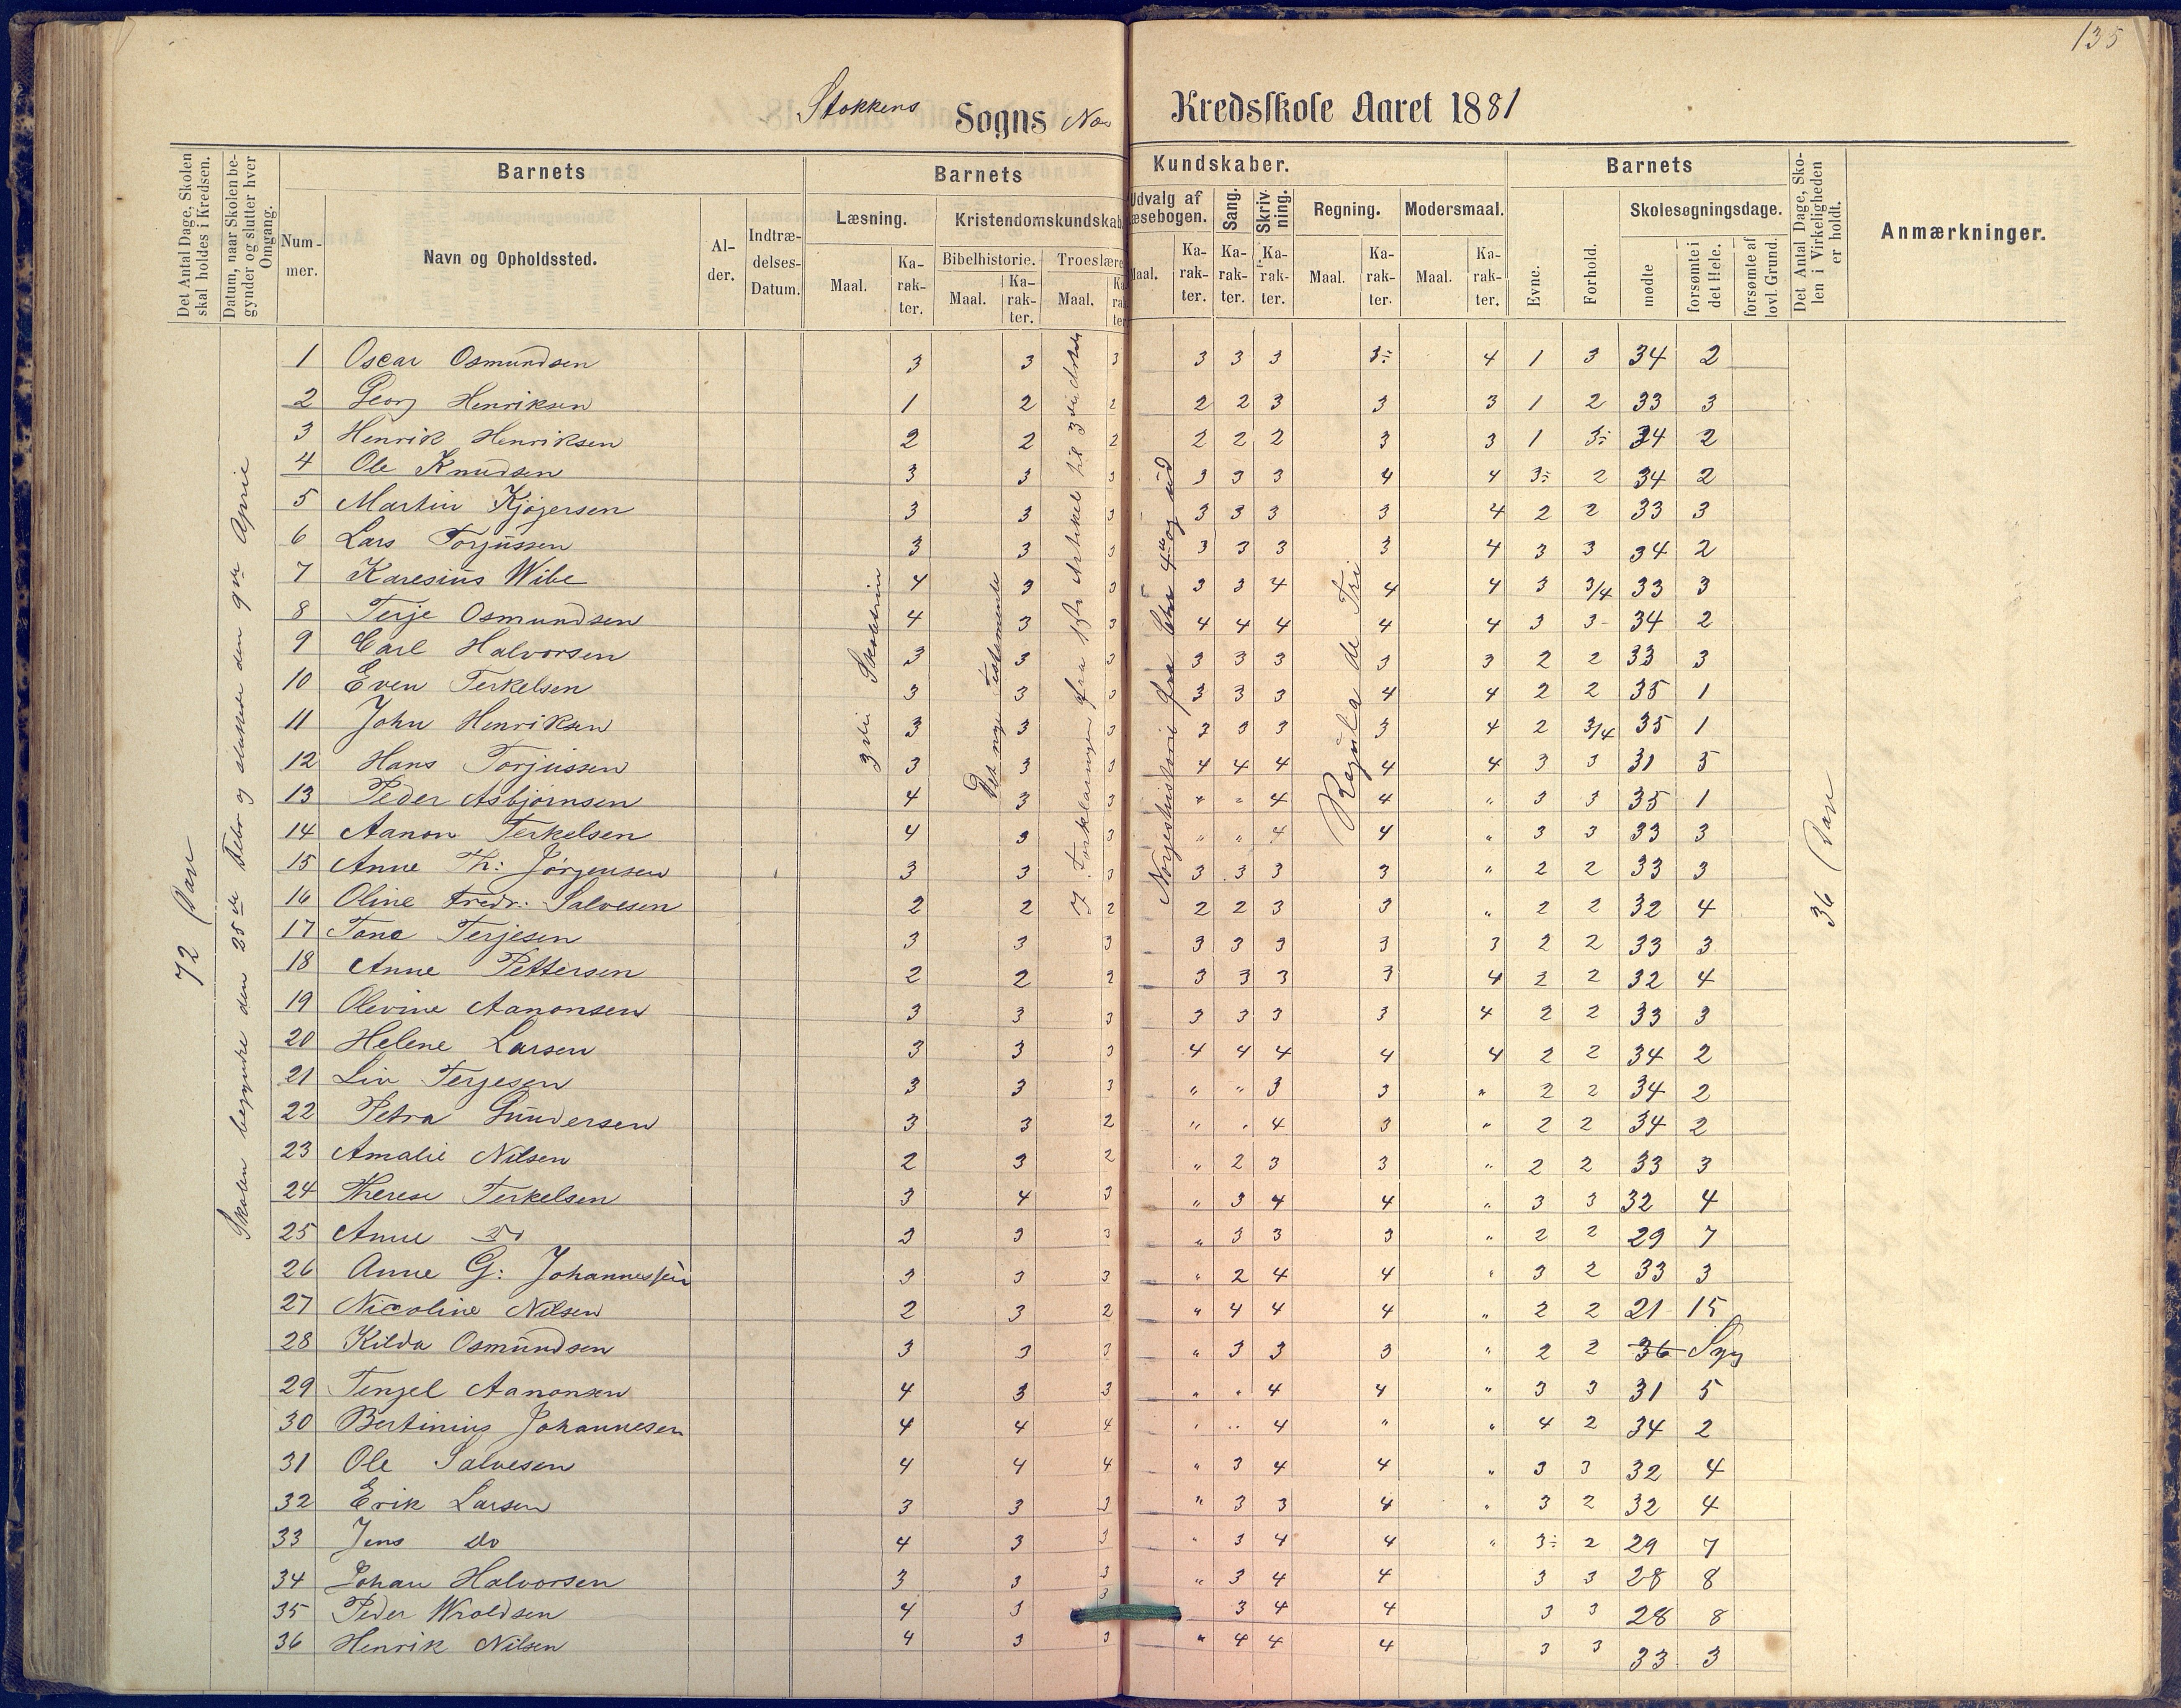 135
Stokkens Sogns No Kredsskole Aaret 1881
Det Antal Dage, Skolen skal holdes i Kredsen.
Datum, naar Skolen begynder og slutter hver Omgang.
Barnets
Nummer.
Navn og Opholdssted.
Alder.
Indtrædelses-Datum.
Barnets Kundskaber.
Læsning.
Maal.
Karakter.
Kristendomskundskab
Bibelhistorie.
Maal.
Karakter.
Troeslære
Maal.
Karakter
Udvalg af Læsebogen.
Maal.
Karakter.
Sang.
Karakter.
Skrivning.
Karakter.
Regning.
Maal.
Karakter.
Modersmaal.
Maal.
Karakter.
Barnets
Evne.
Forhold.
Skolesøgningsdage.
mødte
forsømte i det Hele.
forsømte af lovl. Grund.
Det Antal Dage, Skolen i Virkeligheden er holdt.
Anmærkninger.
72
Skolen begyndte den 25de Febr og sluttede den 9de April
3die
Det nye Testamente
Forklaringen fra 1ste Artikel til 3die
Norgeshistorie fra
Regula de Tri
36
1 Oscar Osmundsen 3 3 3 3 3 3 3÷ 4 1 3 34 2
2 Georg Henriksen 1 2 2 2 2 3 3 3 1 2 33 3
3 Henrik Henriksen 2 2 2 2 2 2 3 3 1 3÷ 34 2
4 Ole Knudsen 3 3 3 3 3 3 4 4 3÷ 2 34 2
5 Martin Kjøgersen 3 3 3 3 3 3 3 4 2 2 33 3
6 Lars Torjussen 3 3 3 3 3 3 3 4 3 3 34 2
7 Karesius Wibe 4 3 3 3 3 4 4 4 3 3/4 33 3
8 Terje Osmundsen 4 3 3 4 4 4 4 4 3 3 34 2
9 Carl Halvorsen 3 3 3 3 3 3 3 3 2 2 33 3
10 Even Terkelsen 3 3 3 3 3 3 4 4 2 2 35 1
11 John Henriksen 3 3 3 3 3 3 3 4 2 3/4 35 1
12 Hans Torjussen 3 3 3 4 4 4 4 4 3 3 31 5
13 Peder Asbjørnsen 4 3 3 " " 4 4 " 3 3 35 1
14 Aanon Terkelsen 4 3 3 " " 4 4 " 3 3 33 3
15 Anne Th: Jørgensen 3 3 3 3 3 3 3 " 2 2 33 3
16 Oline Fredr: Salvesen 2 2 2 2 2 3 3 " 2 2 32 4
17 Tone Terjesen 3 3 3 3 3 3 3 3 2 2 33 3
18 Anne Pettersen 2 2 2 3 3 3 3 4 2 2 32 4
19 Olevine Aanonsen 3 3 3 3 3 3 3 4 2 2 33 3
20 Helene Larsen 3 3 3 4 4 4 4 4 2 2 34 2
21 Liv Terjesen 3 3 3 " " 3 3 " 2 2 34 2
22 Petra Gundersen 3 3 2 " " 4 3 " 2 2 34 2
23 Amalie Nilsen 2 3 2 " 2 3 3 " 2 2 33 3
24 Therese Terkelsen 3 4 3 " 3 4 4 " 3 3 32 4
25 Anne Do 3 3 3 " 3 3 3 " 2 2 29 7
26 Anne G: Johannessen 3 3 3 " 2 4 4 " 3 2 33 3
27 Nicoline Nilsen 2 3 2 " 4 4 4 " 2 2 21 15
28 Kilda Osmundsen 3 3 3 " 3 3 3 " 2 2 36 Syg
29 Tenjel Aanonsen 4 3 3 " " 4 4 " 3 3 31 5
30 Bertinius Johannesen 4 4 4 " " 4 " " 4 2 34 2
31 Ole Salvesen 4 4 4 " 3 4 4 " 3 3 32 4
32 Erik Larsen 3 3 3 " 3 3 4 " 3 2 32 4
33 Jens do 4 3 3 " 3 4 4 " 3÷ 2 29 7
34 Johan Halvorsen 3 3 3 " 3 4 4 3 3 28 8
35 Peder Wroldsen 4 3 3 3 4 4 3 3 28 8
36 Henrik Nilsen 4 3 3 " 4 4 4 3 3 33 3